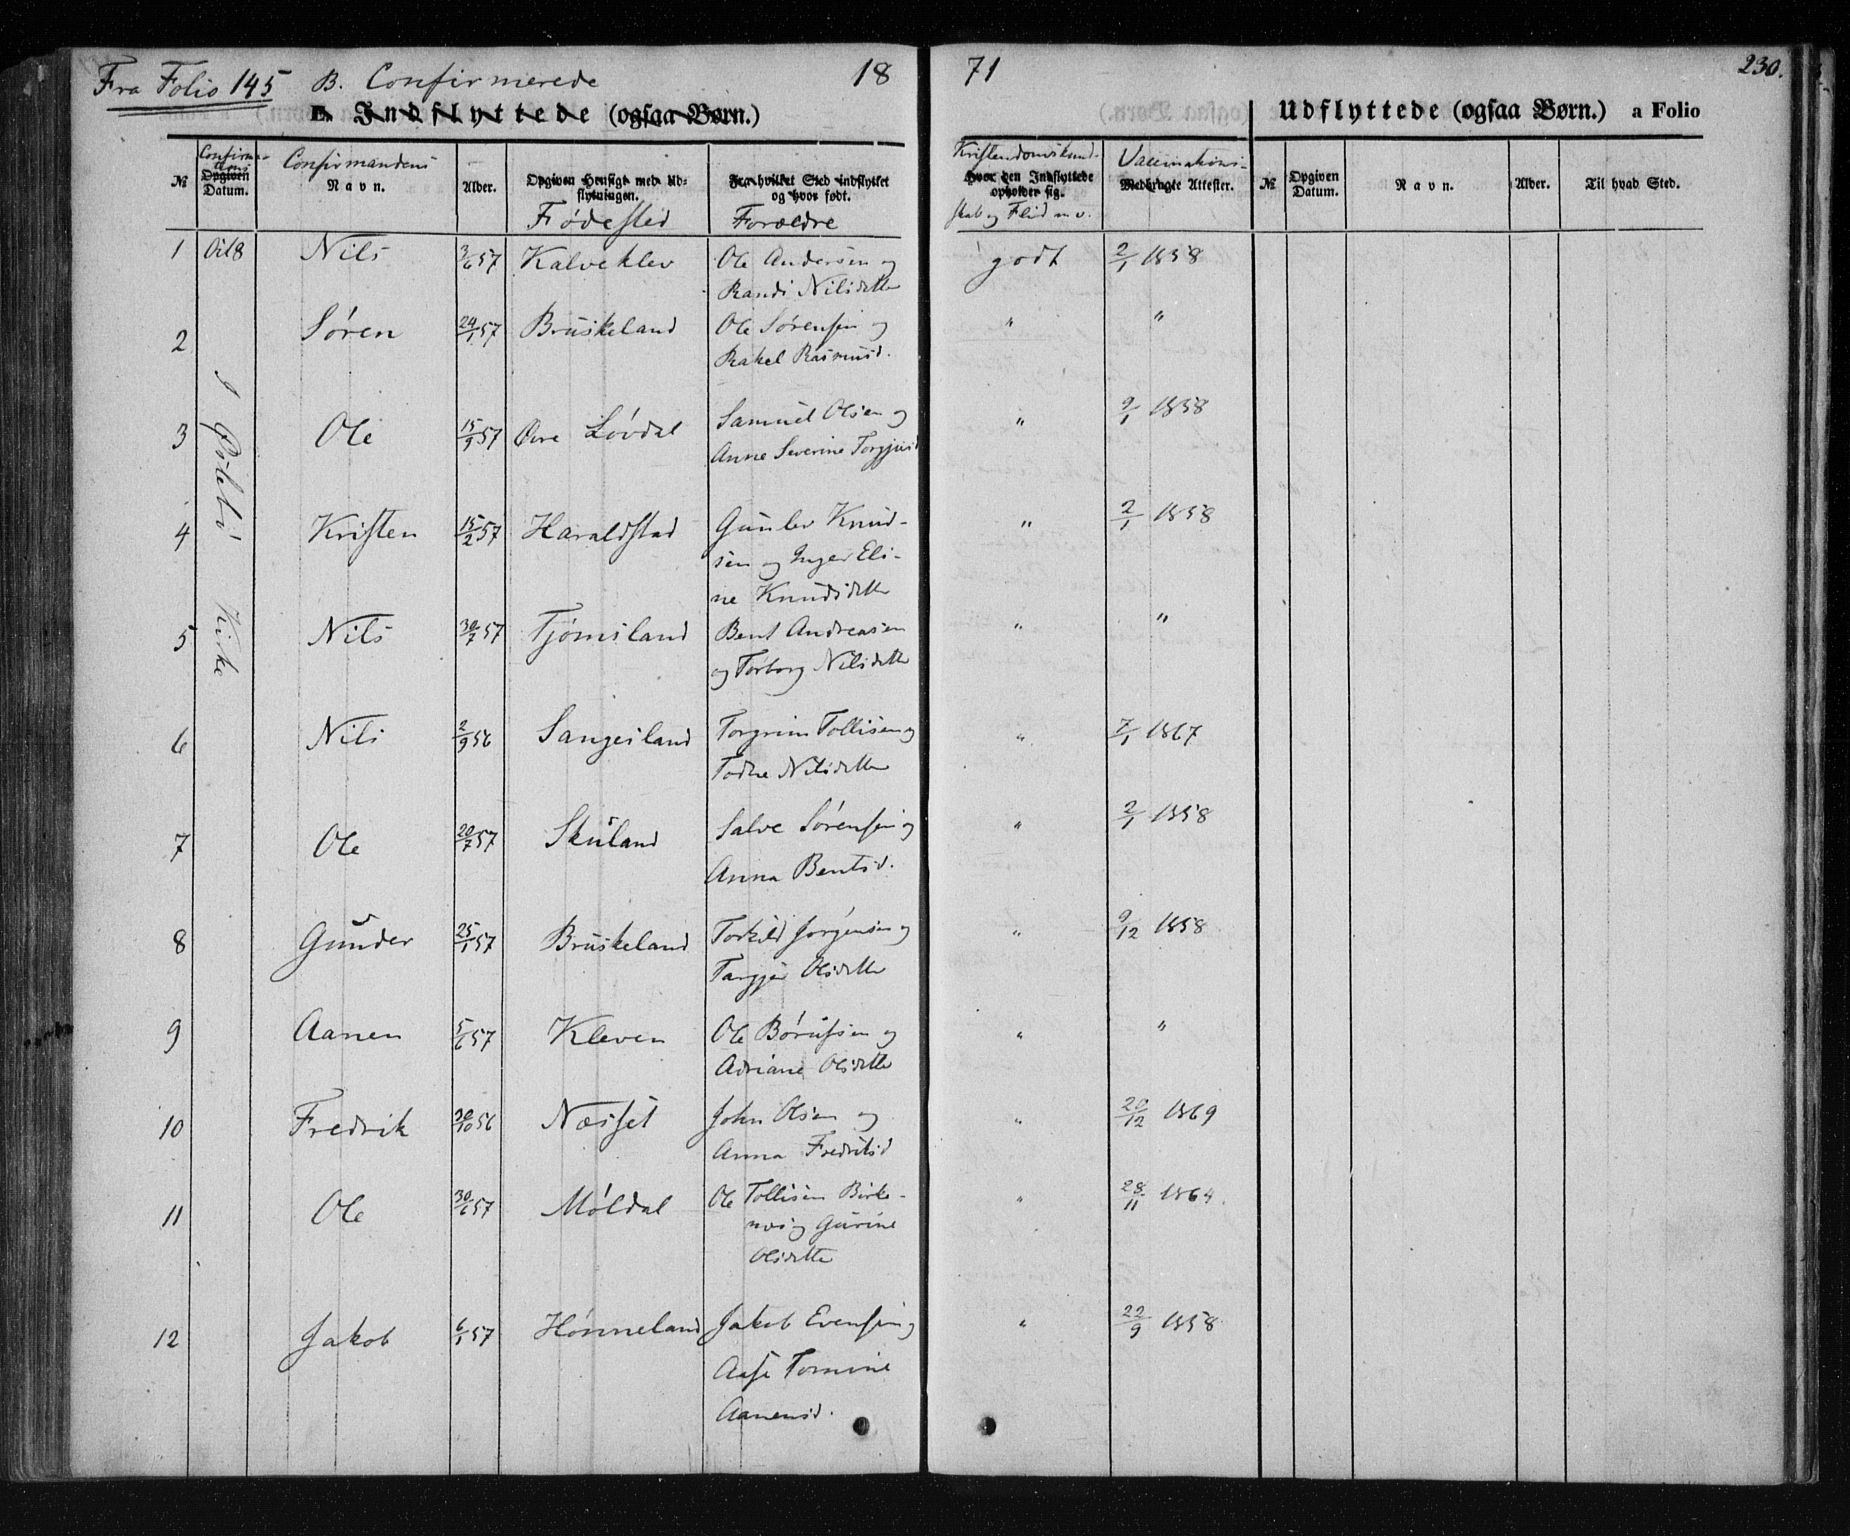 Fra Folio 145 B. Confirmerede 18 71 230.
E. Indflyttede (ogsaa Børn.) Udflyttede (ogsaa Børn.) a Folio
№ Opgiven Datum. Confirmandens Navn. Alder. Opgiven Hensigt med Udflytningen. Fødested Fra hvilket Sted indflyttet og hvor født. Forældre
Kristendomskundskab og Flid m. v. Hvor den Indflyttede opholder sig. Vaccinations- Medbragte Attester. № Opgiven Datum. Navn. Alder. Til hvad Sted.
I Kirke
1 Nils 3/6 57 Kalveklev Ole Andersen og godt 2/1 1858
Randi Nilsdatter
2 Søren 24/1 57 Bruskeland Ole Sørensen og " "
Rakel Rasmusd.
3 Ole 15/9 57 Øvre Løvdal Samuel Olsen og " 9/1 1858
Anne Severine
4 Kristen 15/2 57 Haraldstad Gunlev Knud- " 2/1 1858
sen og Inger Eli-
ne Knudsdatter
5 Nils 30/7 57 Tjømsland Bent Andreasen " "
og Torborg Nilsdatter
6 Nils 2/9 56 Sangesland Torgrim Tollisen og " 7/1 1867
Nilsdatter
7 Ole 20/7 57 Skuland Salve Sørensen og " 2/1 1858
Anna Bentsd.
8 Gunder 25/1 57 Bruskeland Torkild Jørgensen og " 9/12 1858
Olsdatter
9 Aanen 5/6 57 Kleven Ole Børufsen og " "
Adriane Olsdatter
10 Fredrik 30/10 56 Næsset John Olsen og " 20/12 1869
Anna Fredriksd
11 Ole 30/6 57 Møldal Ole Tollisen Birke- " 28/11 1864.
nes og Gurine
Olsdatter
12 Jakob 6/1 57 Hønneland Jakob Evensen og " 22/9 1858
Aase Tomine
Aanensd.